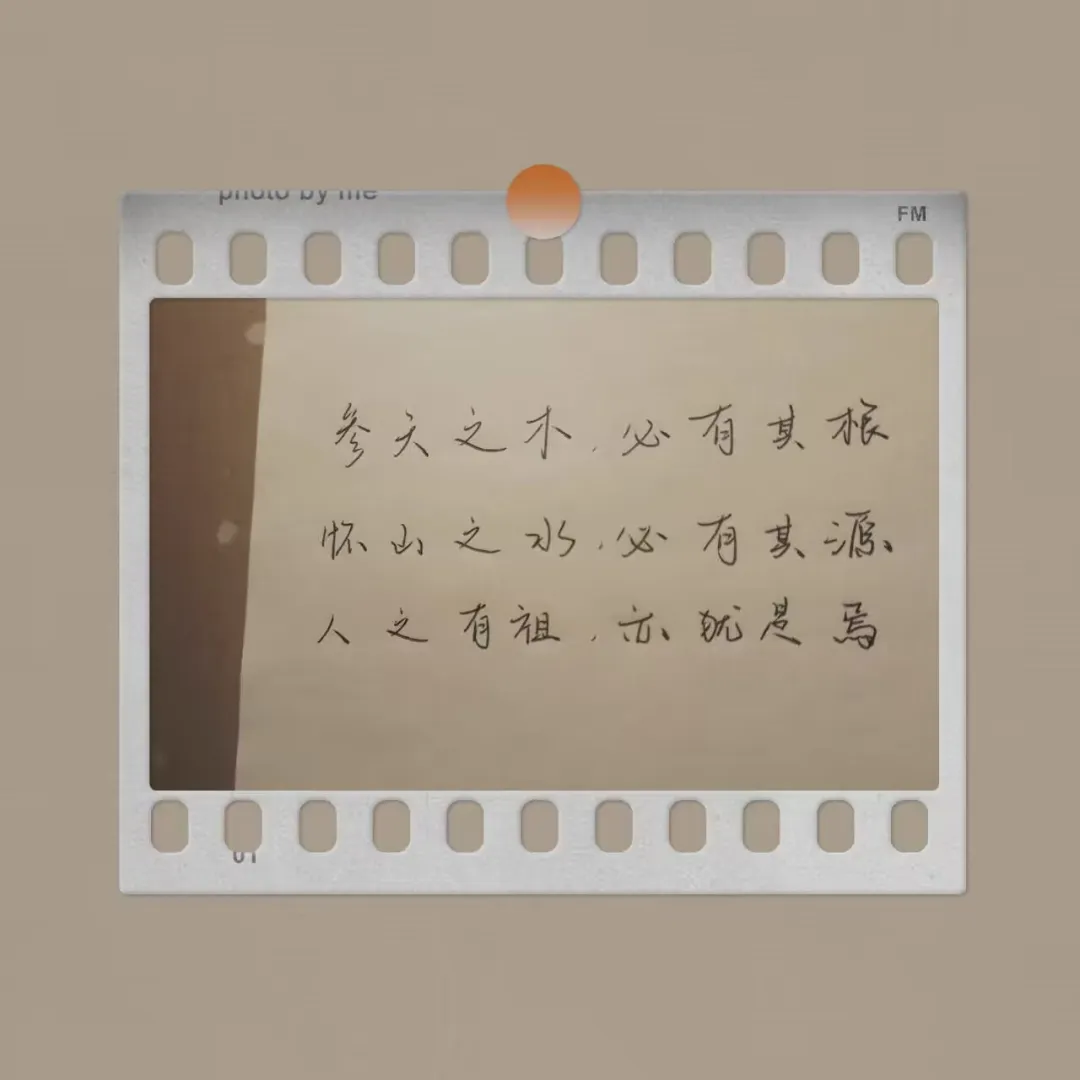 photo by me
FM
参天之木，必有其根
怀山之水，必有其源
人之有祖，亦犹是焉
01